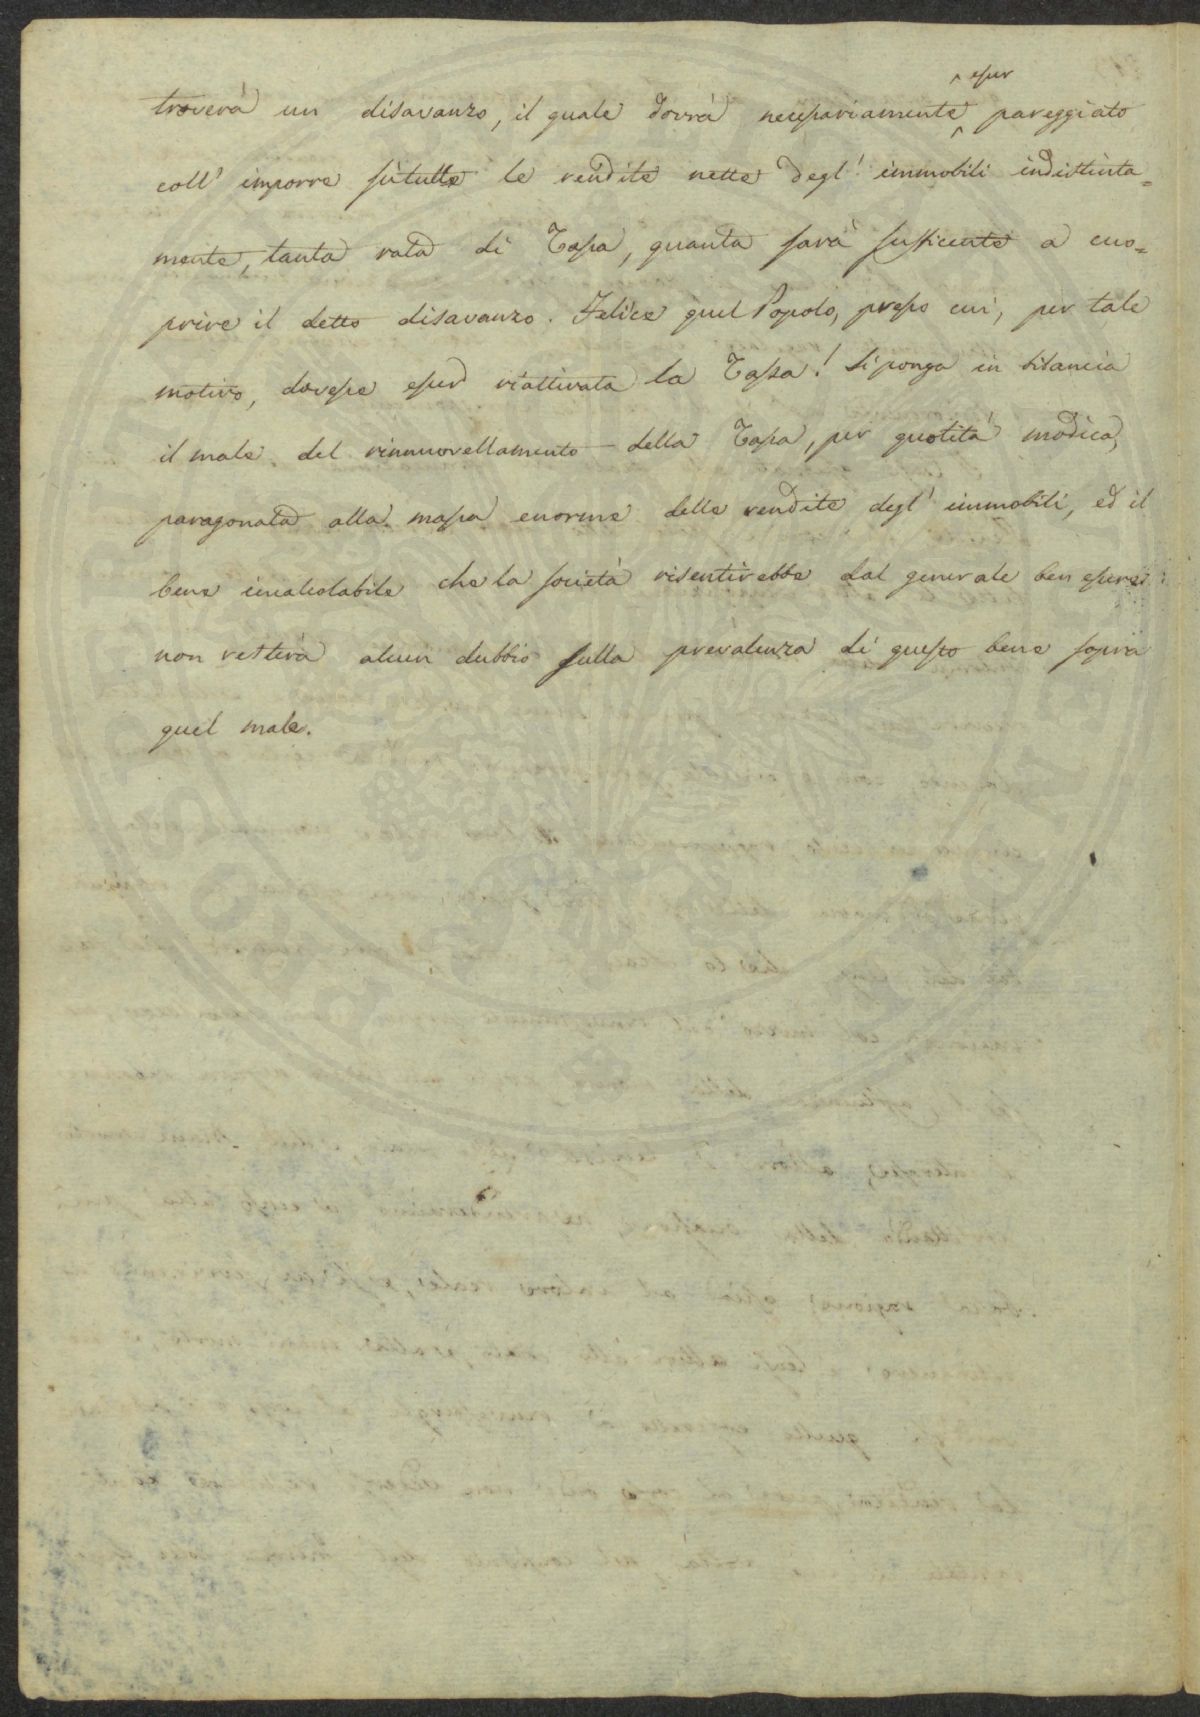 troverà un disavanzo, il quale dovrà necessariamente esser pareggiato
coll' imporre su tutte le rendite nette degl' immobili indistinta=
mente, tanta rata di Tassa, quanta sarà sufficente a cuo=
prire il detto disavanzo. Felice quel Popolo, presso cui, per tale
motivo, dovesse esser riattivata la Tassa! Si ponga in bilancia
il male del rinnuovellamento della Tassa, per quotità modica,
paragonata alla massa enorme delle rendite degl' immobili, ed il
bene incalcolabile che la società risentirebbe dal generale ben essere:
non resterà alcun dubbio sulla prevalenza di questo bene sopra
quel male.